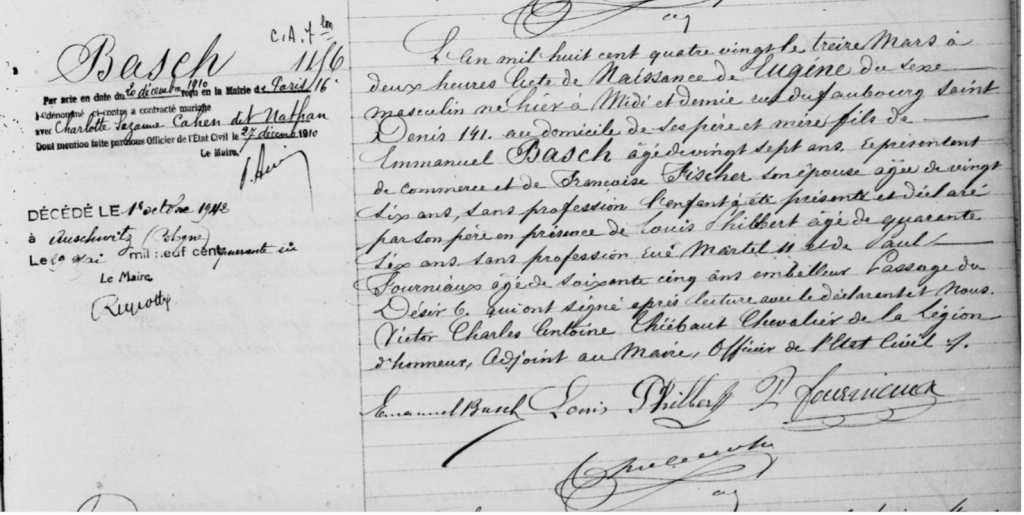 C.A. 7
Basch
1146
Par acte en date du 20 décembre 1910 reçu en la Mairie de Paris 16
le dénommé ci-contre a contracté mariage
avec Charlotte Suzanne Cahen dit Nathan
Dont mention faite par nous Officier de l'Etat Civil le 27 décemb 1910
Le Maire,
DÉCÉDÉ LE 1 octobre 1943
à Auschwitz
Le mai mil neuf cent
Le Maire
L'an mil huit cent quatre vingt le treize Mars à
deux heures Acte de Naissance de Eugène du sexe
masculin né hier à Midi et demie rue du faubourg Saint
Denis 141. au domicile de ses père et mère fils de
Emmanuel Basch âgé de vingt sept ans. Représentant
de commerce et de Françoise Fischer son épouse âgée de vingt
six ans, sans profession L'enfant a été présenté et déclaré
par son père en présence de Louis Philbert âgé de quarante
six ans sans profession rue Martel 11 et de Paul
Fourniaux âgé de soixante cinq ans emballeur Passage du
Désir 6. qui ont signé après lecture avec le déclarant et Nous.
Victor Charles Antoine Thiébaut Chevalier de la Légion
d'honneur, Adjoint au Maire, Officier de l'Etat Civil ./.
Emanuel Basch Louis Philbert P Fourniaux